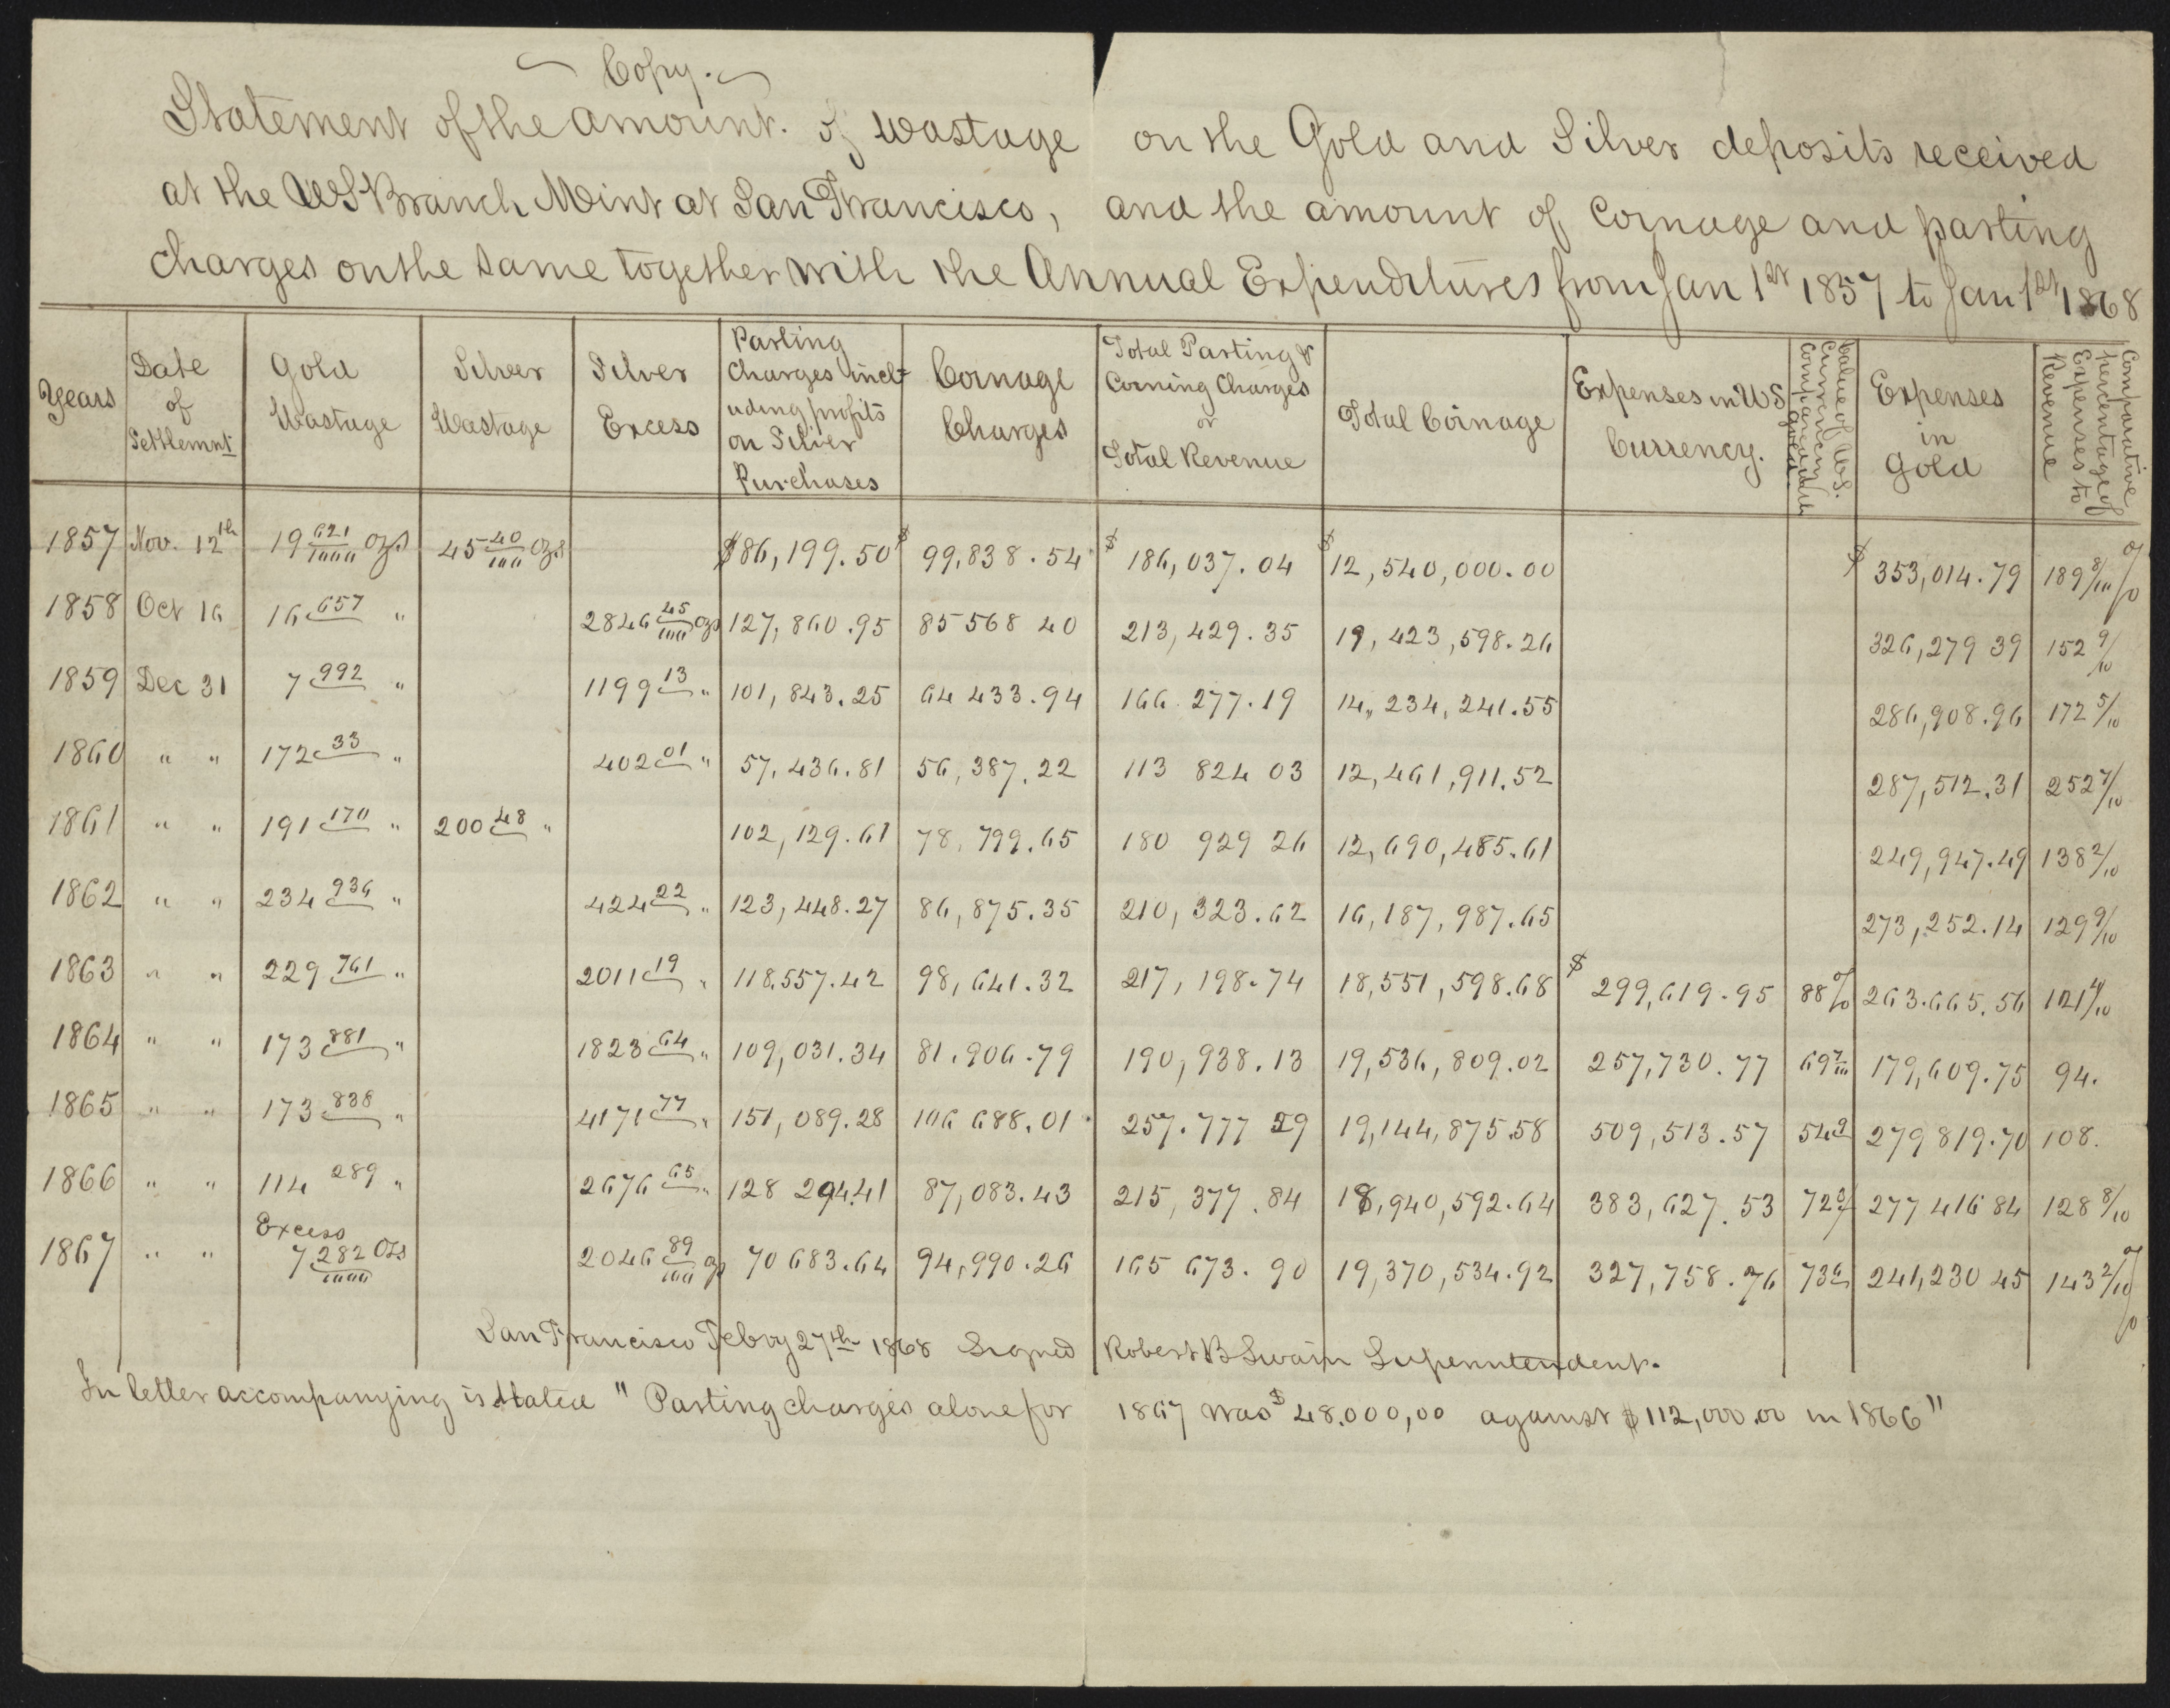 Copy.
Statement of the amount. of wastage on the Gold and Silver deposits received
at the US Branch Mint at San Francisco, and the amount of Coinage and parting
charges on the same together with the Annual Expenditures from Jan 1st 1857 to Jan 1st 1868
Years | Date of Settlemnt | Gold Wastage | Silver Wastage | Silver Excess | Parting Charges including profits on Silver Purchases | Coinage Charges | Total Parting & Coining Charges or Total Revenue | Total Coinage | Expenses in US Currency. | Value of U.S. Currency compared with gold | Expenses in Gold | Comparative percentage of Expenses to Revenue
1857 | Nov. 12th | 19 621/1000 ozs | 45 40/100 ozs | | $86,199.50 | $99,838.54 | $186,037.04 | $12,540,000.00 | | | $353,014.79 | 189 8/10 %
1858 | Oct 16 | 16 657 " | | 2846 45/100 ozs | 127,860.95 | 85 568 40 | 213,429.35 | 19,423,598.26 | | | 326,279 39 | 152 9/10
1859 | Dec 31 | 7 992 " | | 1199 13 " | 101,843.25 | 64 433.94 | 166.277.19 | 14,234,241.55 | | | 286,908.96 | 172 5/10
1860 | " " | 172 33 " | | 402 01 " | 57,436.81 | 56,387.22 | 113 824 03 | 12,461,911.52 | | | 287,512.31 | 252 7/10
1861 | " " | 191 170 " | 200 48 " | | 102,129.61 | 78,799.65 | 180 929 26 | 12,690,485.61 | | | 249,947.49 | 138 2/10
1862 | " " | 234 936 " | | 424 22 " | 123,448.27 | 86,875.35 | 210,323.62 | 16,187,987.65 | | | 273,252.14 | 129 9/10
1863 | " " | 229 761 " | | 2011 19 " | 118.557.42 | 98,641.32 | 217,198.74 | 18,551,598.68 | $299,619.95 | 88% | 263.665.56 | 121 4/10
1864 | " " | 173 881 " | | 1823 64 " | 109,031.34 | 81.906.79 | 190,938.13 | 19,536,809.02 | 257,730.77 | 69 7/10 | 179,609.75 | 94.
1865 | " " | 173 838 " | | 4171 77 " | 151,089.28 | 106 688.01 | 257.777 29 | 19,144,875.58 | 509,513.57 | 54 9 | 279 819.70 | 108.
1866 | " " | 114 289 " | | 2676 65 " | 128 294.41 | 87,083.43 | 215,377.84 | 18,940,592.64 | 383,627.53 | 72 3 | 277 416 84 | 128 8/10
1867 | " " | Excess 7 282/1000 Ozs | | 2046 89/100 ozs | 70 683.64 | 94,990.26 | 165 673.90 | 19,370,534.92 | 327,758.76 | 73 6 | 241,230 45 | 143 2/10 %
San Francisco Febry 27th 1868 Signed Robert B Swain Superintendent.
In letter accompanying is stated "Parting charges alone for 1867 was $48.000,00 against $112,000.00 in 1866"